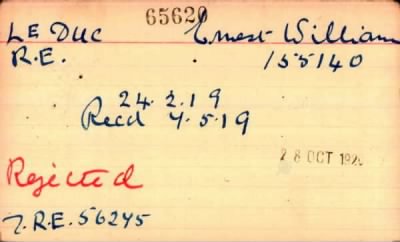 65620
LE DUC Ernest William
R.E. 155140
24.2.19
Recd 7.5.19
28 OCT 192
Rejected
7.R.E. 56245